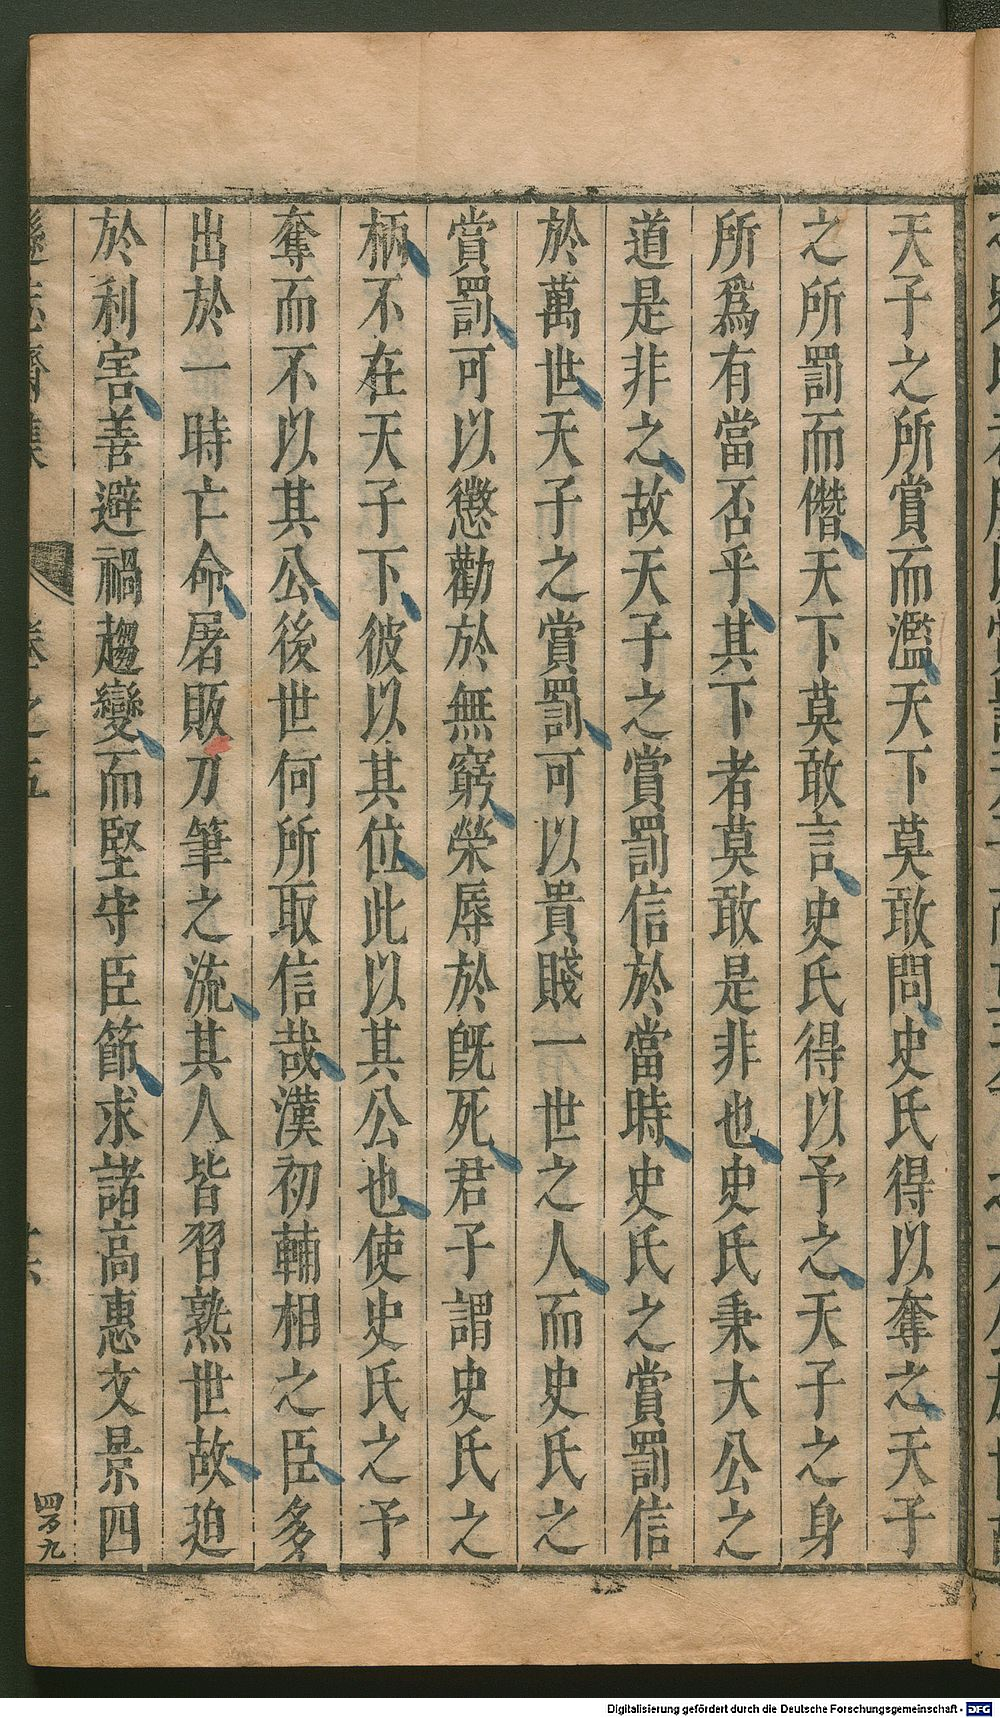 天子之所賞而濫天下莫敢問史氏得以奪之天子
之所罰而僭天下莫敢言史氏得以予之天子之身
所爲有當否乎其下者莫敢是非也史氏秉大公之
道是非之故天子之賞罰信於當時史氏之賞罰信
於萬世天子之賞罰可以貴賤一世之人而史氏之
賞罰可以懲勸於無窮榮辱於旣死君子謂史氏之
柄不在天子下彼以其位此以其公也使史氏之予
奪而不以其公後世何所取信哉漢初輔相之臣多
出於一時亡命屠販刀筆之流其人皆習熟世故迫
於利害善避禍趨變而堅守臣節求諸高惠文景四
遜志齋集
卷之五
四百九
Digitalisierung gefördert durch die Deutsche Forschungsgemeinschaft - DFG